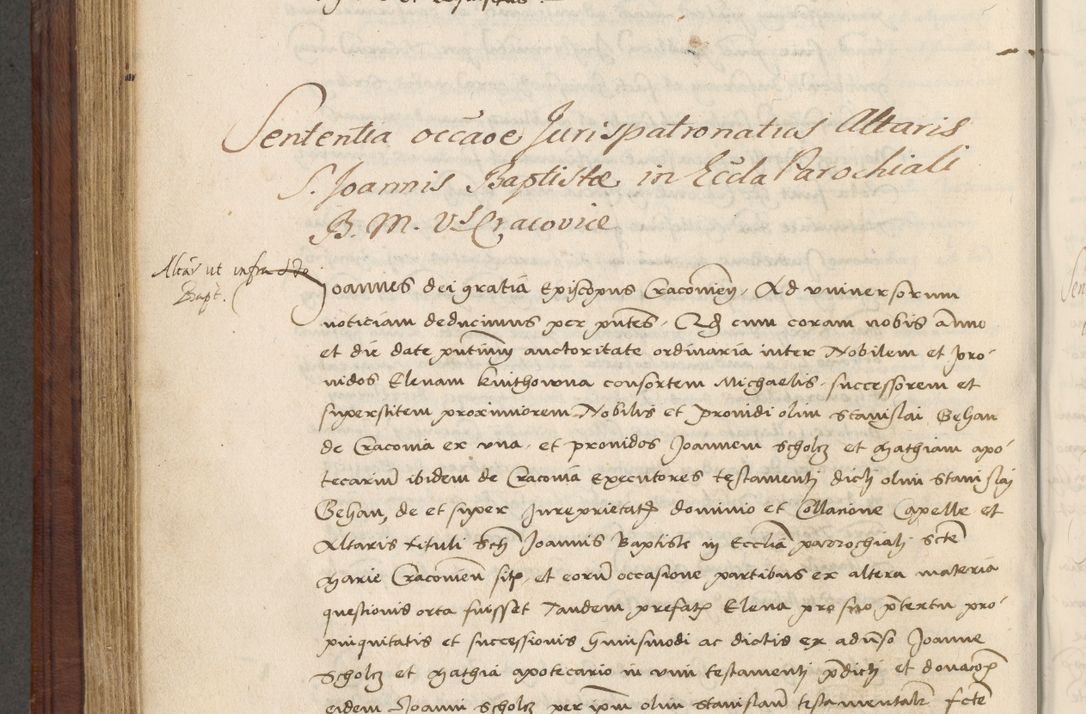 Sententia occãoe Jurispatronatus Altaris
S. Joannis Baptistæ in Eccla Parochiali
B. M. Vs Cracoviæ
Altar ut infra S Jo
Bapt.
Joannes dei gratia Episcopus Cracovien, Ad universorum
noticiam deducimus per pñtes, Qd cum coram nobis anno
et die date pñtium auctoritate ordinaria inter Nobilem et pro-
vidos Elenam Kuithowna consortem Michaelis, successorem et
superstitem proximiorem Nobilis et Providi olim Stanislai Gehan
de Cracovia ex una, et providos Joannem Scholcz et Mathiam apo-
tecariũ ibidem de Cracovia Executores testamenti dicti olim Stanislai
Gehan, de et super Jureprietatis dominio et Collatione Capelle et
Altaris tituli Scti Joannis Baptiste in Ecclia parrochiali scte
Marie Cracovien sitis, et eorũ occasione partibus ex altera materia
questionis orta fuisset Tandem prefata Elena pro suo pretextu pro-
pinquitatis et successionis huiusmodi ac dictis ex adũso Joanne
Scholcz et Mathia apotecario in vim testamenti pdicti et donacois
eidem Joanni Scholcz per ipm olim Stanislaum testamentalr fcte